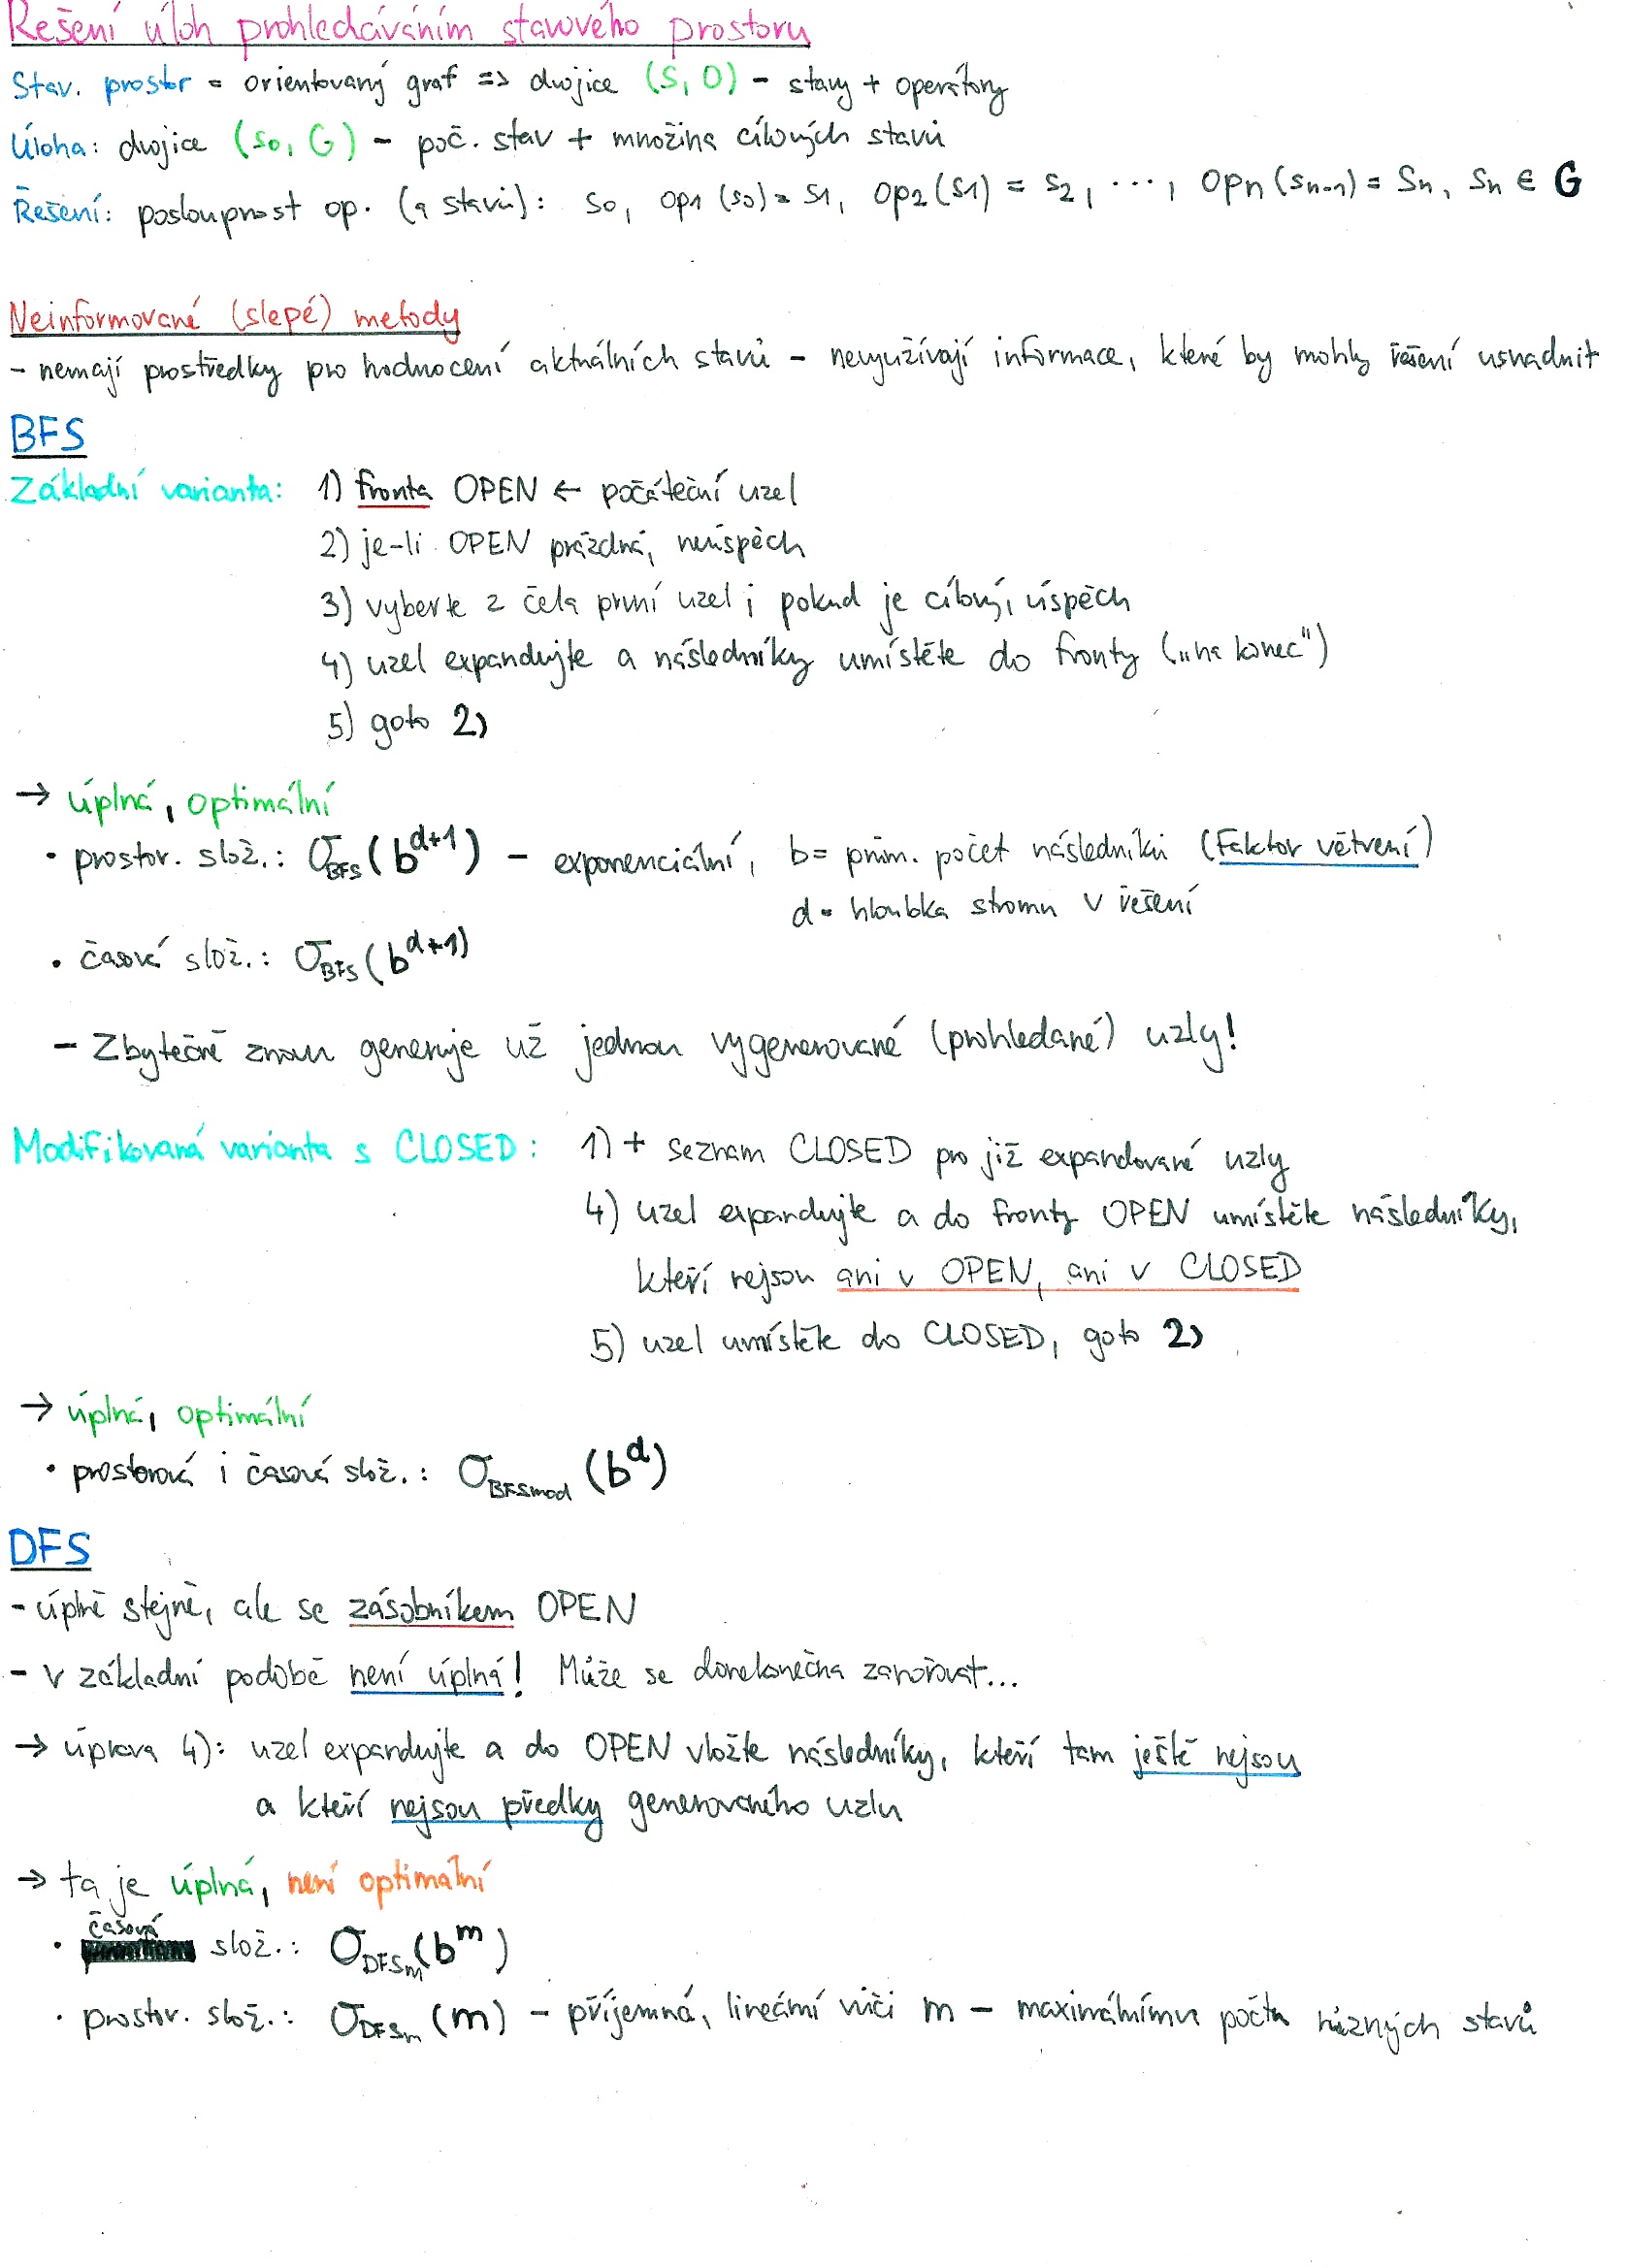 Řešení úloh prohledáváním stavového prostoru
Stav. prostor = orientovaný graf => dvojice (S, O) - stavy + operátory
Úloha: dvojice (s0, G) - poč. stav + množina cílových stavů
Řešení: posloupnost op. (a stavů): s0, op1(s0) = s1, op2(s1) = s2, ..., opn(sn-1) = sn, sn ∈ G
Neinformované (slepé) metody
- nemají prostředky pro hodnocení aktuálních stavů - nevyužívají informace, které by mohly řešení usnadnit
BFS
Základní varianta: 1) fronta OPEN ← počáteční uzel
2) je-li OPEN prázdná, neúspěch
3) vyberte z čela první uzel; pokud je cílový, úspěch
4) uzel expandujte a následníky umístěte do fronty („na konec")
5) goto 2)
→ úplná, optimální
• prostor. slož.: O_BFS(b^(d+1)) - exponenciální, b = prům. počet následníků (faktor větvení)
d = hloubka stromu v řešení
• časová slož.: O_BFS(b^(d+1))
- Zbytečně znovu generuje už jednou vygenerované (prohledané) uzly!
Modifikovaná varianta s CLOSED: 1) + seznam CLOSED pro již expandované uzly
4) uzel expandujte a do fronty OPEN umístěte následníky,
kteří nejsou ani v OPEN, ani v CLOSED
5) uzel umístěte do CLOSED, goto 2)
→ úplná, optimální
• prostorová i časová slož.: O_BFSmod(b^d)
DFS
- úplně stejné, ale se zásobníkem OPEN
- v základní podobě není úplná! Může se donekonečna zanořovat...
→ úprava 4): uzel expandujte a do OPEN vložte následníky, kteří tam ještě nejsou
a kteří nejsou předky generovaného uzlu
→ ta je úplná, není optimální
• časová slož.: O_DFSm(b^m)
• prostor. slož.: O_DFSm(m) - příjemná, lineární vůči m - maximálnímu počtu různých stavů